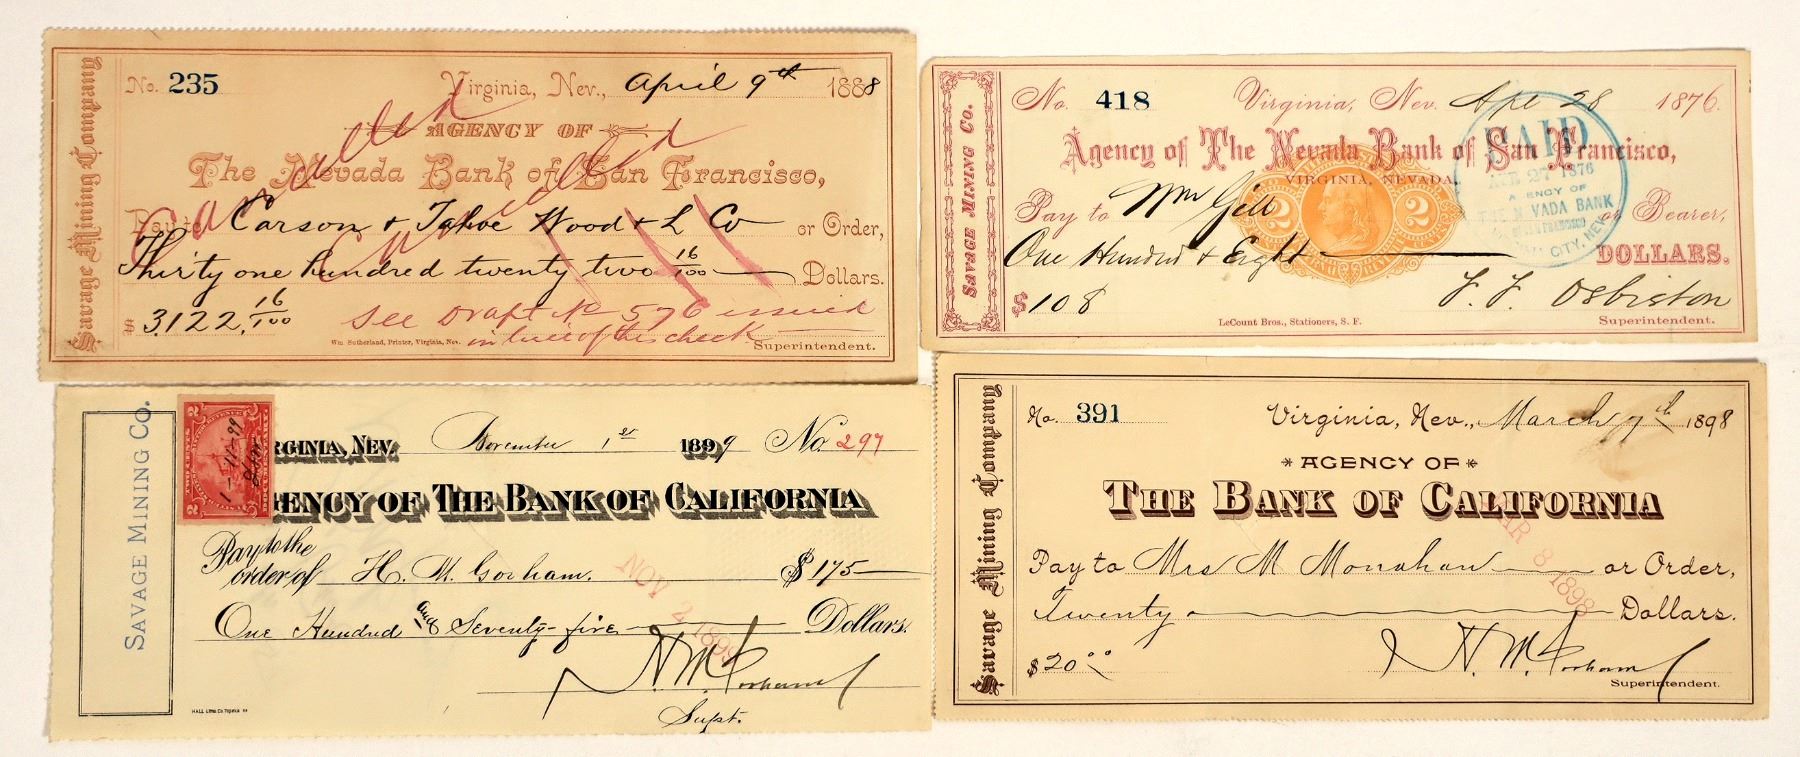 Savage Mining Company
No. 235 Virginia, Nev., April 9th 1888
AGENCY OF
The Nevada Bank of San Francisco,
Pay to Carson & Tahoe Wood & L Co or Order,
Thirty one hundred twenty two 16/100 Dollars.
$ 3,122, 16/100
Cancelled
Cancelled
See Draft No 576 issued
in lieu of this check
Wm Sutherland, Printer, Virginia, Nev.
Superintendent.
SAVAGE MINING CO.
No. 418 Virginia, Nev. Apl 28 1876.
Agency of The Nevada Bank of San Francisco,
VIRGINIA, NEVADA.
Pay to Wm Gill or Bearer,
One Hundred & Eight DOLLARS.
$ 108
F. F. Osbiston
Superintendent.
LeCount Bros., Stationers, S. F.
2 2
PAID
1876
AGENCY OF
THE NEVADA BANK
OF SAN FRANCISCO
CITY, NEV.
SAVAGE MINING CO.
VIRGINIA, NEV. November 1st 1899 No. 297
AGENCY OF THE BANK OF CALIFORNIA
Pay to the
order of H. M. Gorham. $ 175
One Hundred and Seventy-five Dollars.
H. M. Gorham
Supt.
NOV 2 1899
TWO CENTS
2 2
1-11-99
Savage Mining Company
No. 391 Virginia, Nev., March 7th 1898
AGENCY OF
THE BANK OF CALIFORNIA
Pay to Mrs M Monahan or Order,
Twenty Dollars.
$ 20.00
H. M. Gorham
Superintendent.
MAR 8 1898